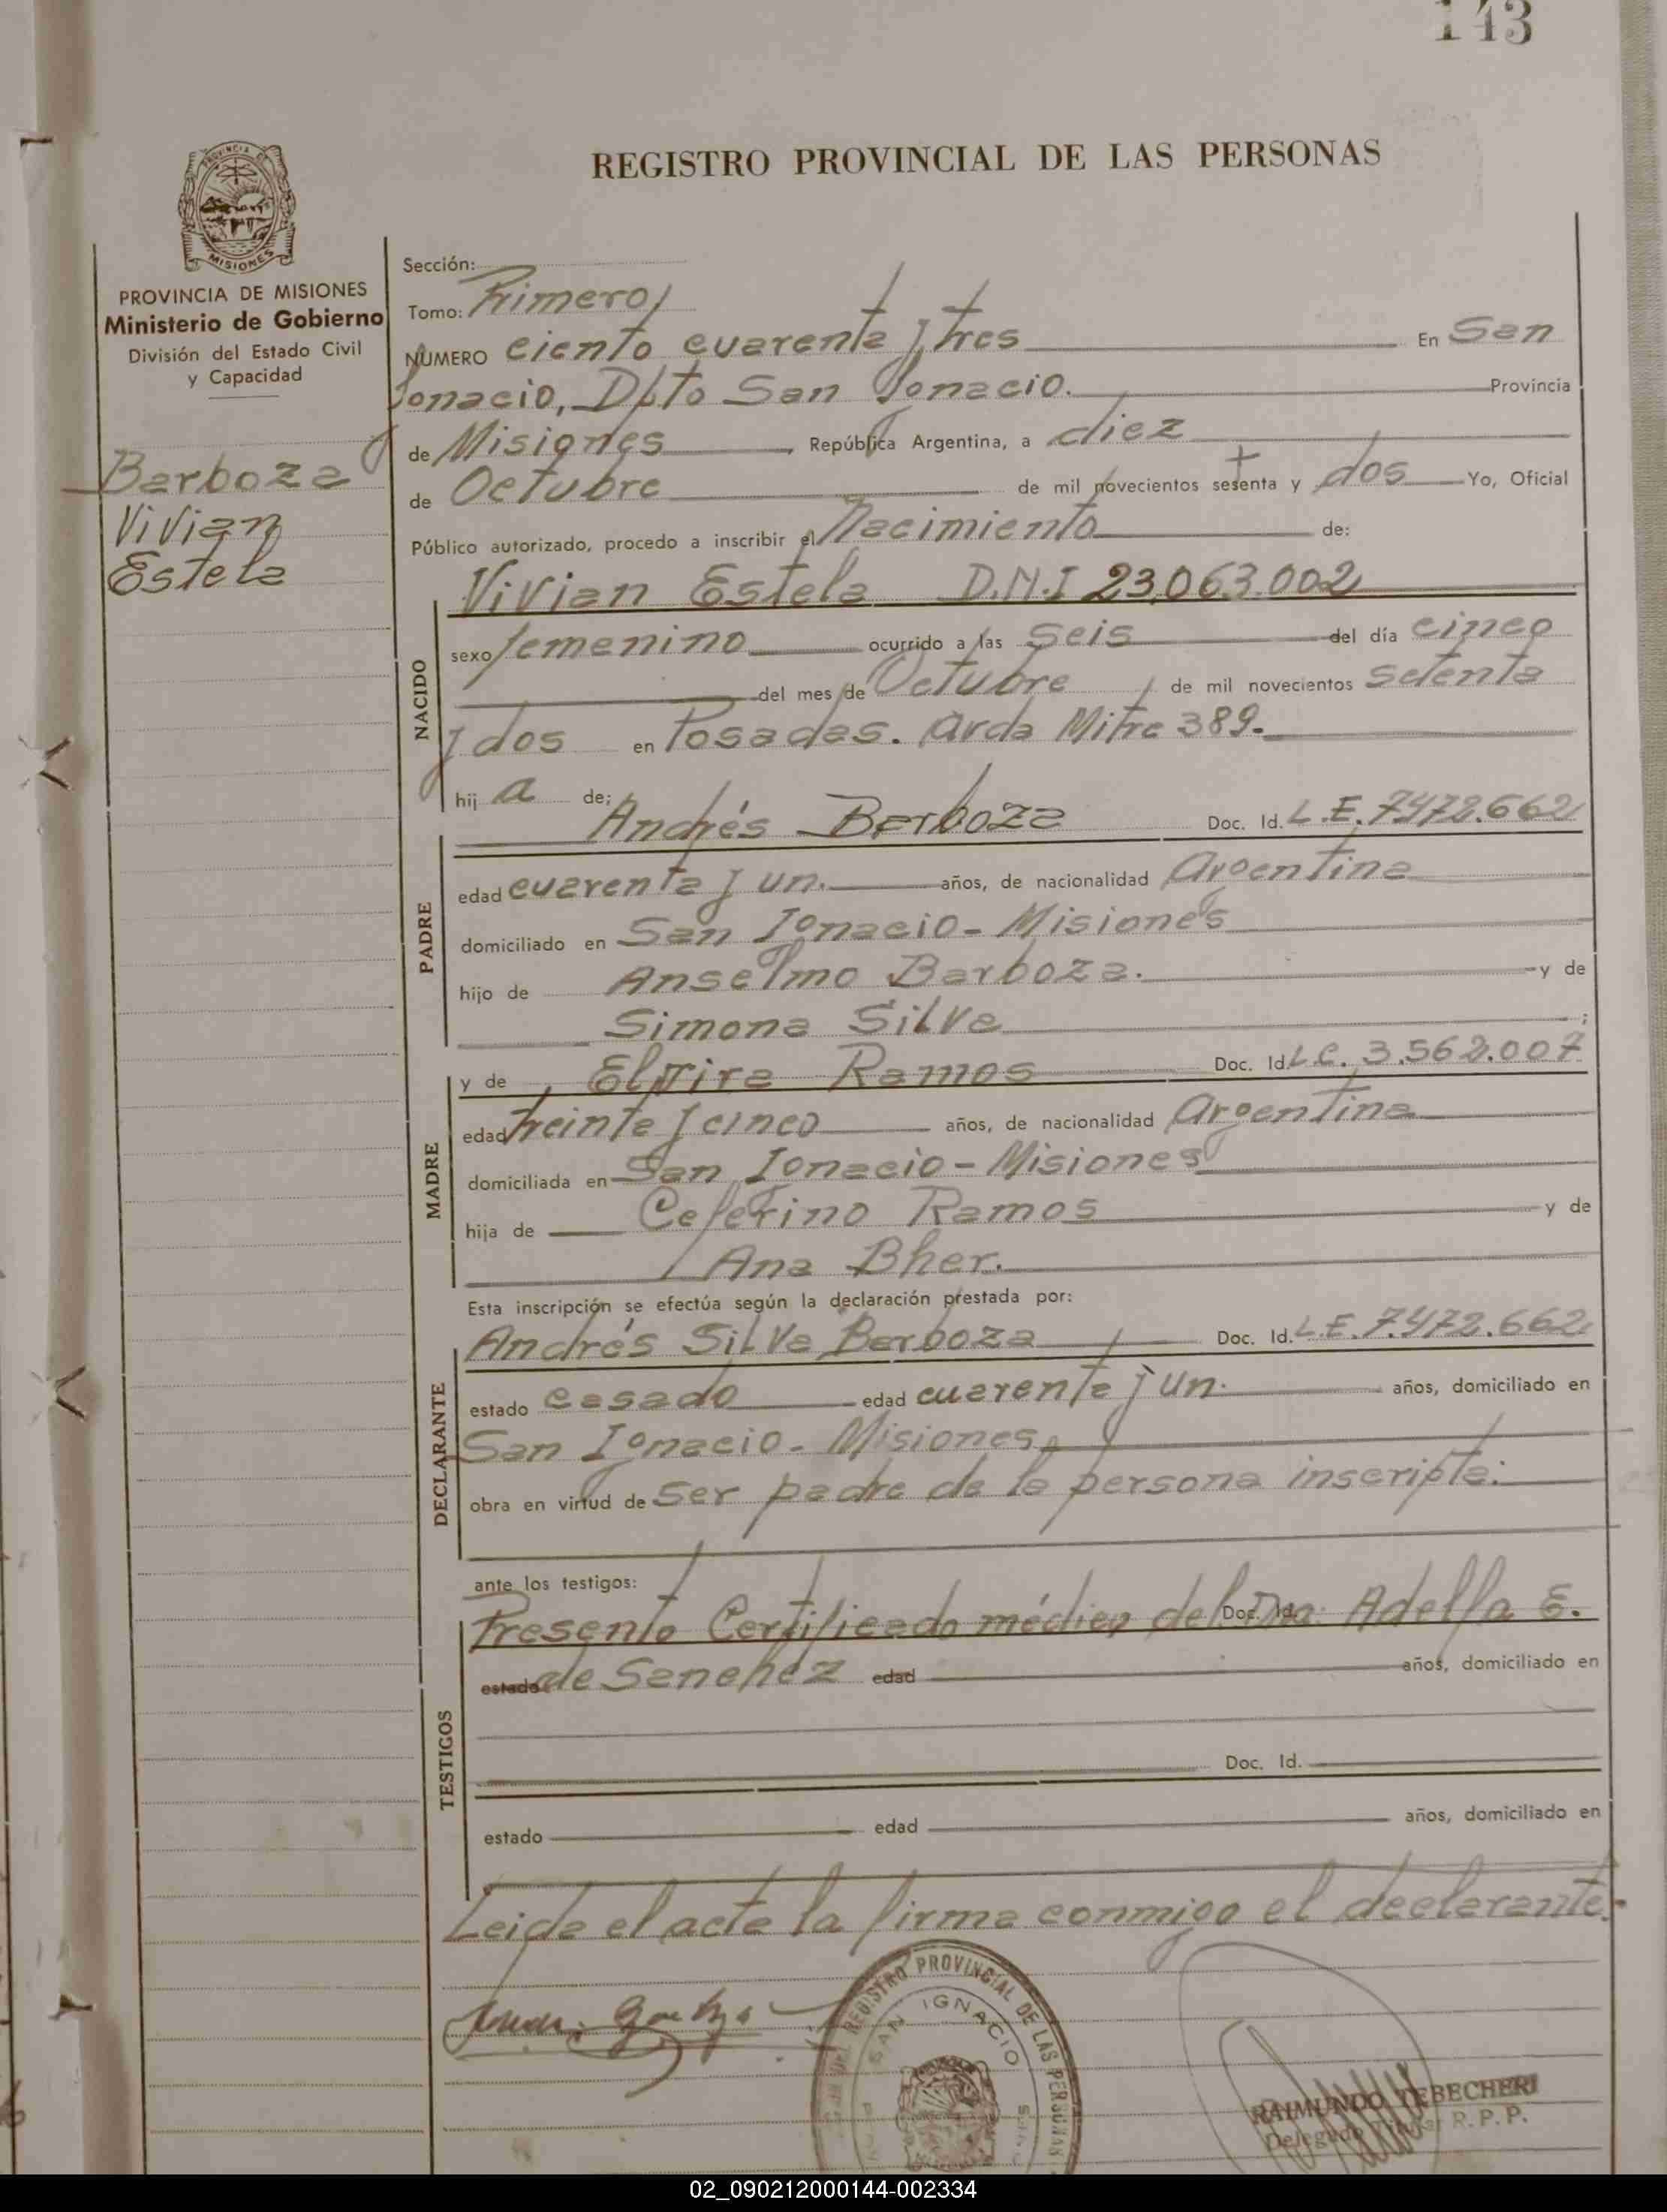 143
REGISTRO PROVINCIAL DE LAS PERSONAS
MISIONES
PROVINCIA DE MISIONES
Ministerio de Gobierno
División del Estado Civil
y Capacidad
Barboza
Vivian
Estela
Sección:
Tomo: Primero
NUMERO ciento cuarenta y tres En San
Ignacio, Dpto San Ignacio. Provincia
de Misiones, República Argentina, a diez
de Octubre de mil novecientos setenta y dos Yo, Oficial
Público autorizado, procedo a inscribir el Nacimiento de:
Vivian Estela D.N.I 23.063.002
NACIDO
sexo femenino ocurrido a las seis del día cinco
del mes de Octubre de mil novecientos setenta
y dos en Posadas. Avda Mitre 389.
hij a de;
Andrés Barboza Doc. Id. L.E. 7.472.662
PADRE
edad cuarenta y un. años, de nacionalidad Argentina
domiciliado en San Ignacio - Misiones
hijo de Anselmo Barboza. y de
Simona Silva ;
y de Elvira Ramos Doc. Id. L.C. 3.562.007
MADRE
edad treinta y cinco años, de nacionalidad Argentina
domiciliada en San Ignacio - Misiones
hija de Ceferino Ramos y de
Ana Bher.
Esta inscripción se efectúa según la declaración prestada por:
Andrés Silva Barboza Doc. Id. L.E. 7.472.662
DECLARANTE
estado casado edad cuarenta y un. años, domiciliado en
San Ignacio - Misiones
obra en virtud de ser padre de la persona inscripta.
ante los testigos:
Presento Certificado médico del Doc. Id. Dra. Adella E.
TESTIGOS
estado de Sanchez edad años, domiciliado en
Doc. Id.
estado edad años, domiciliado en
Leida el acta la firma conmigo el declarante.
REGISTRO PROVINCIAL DE LAS PERSONAS
SAN IGNACIO
RAIMUNDO TEBECHERI
Delegado Titular R. P. P.
02_090212000144-002334